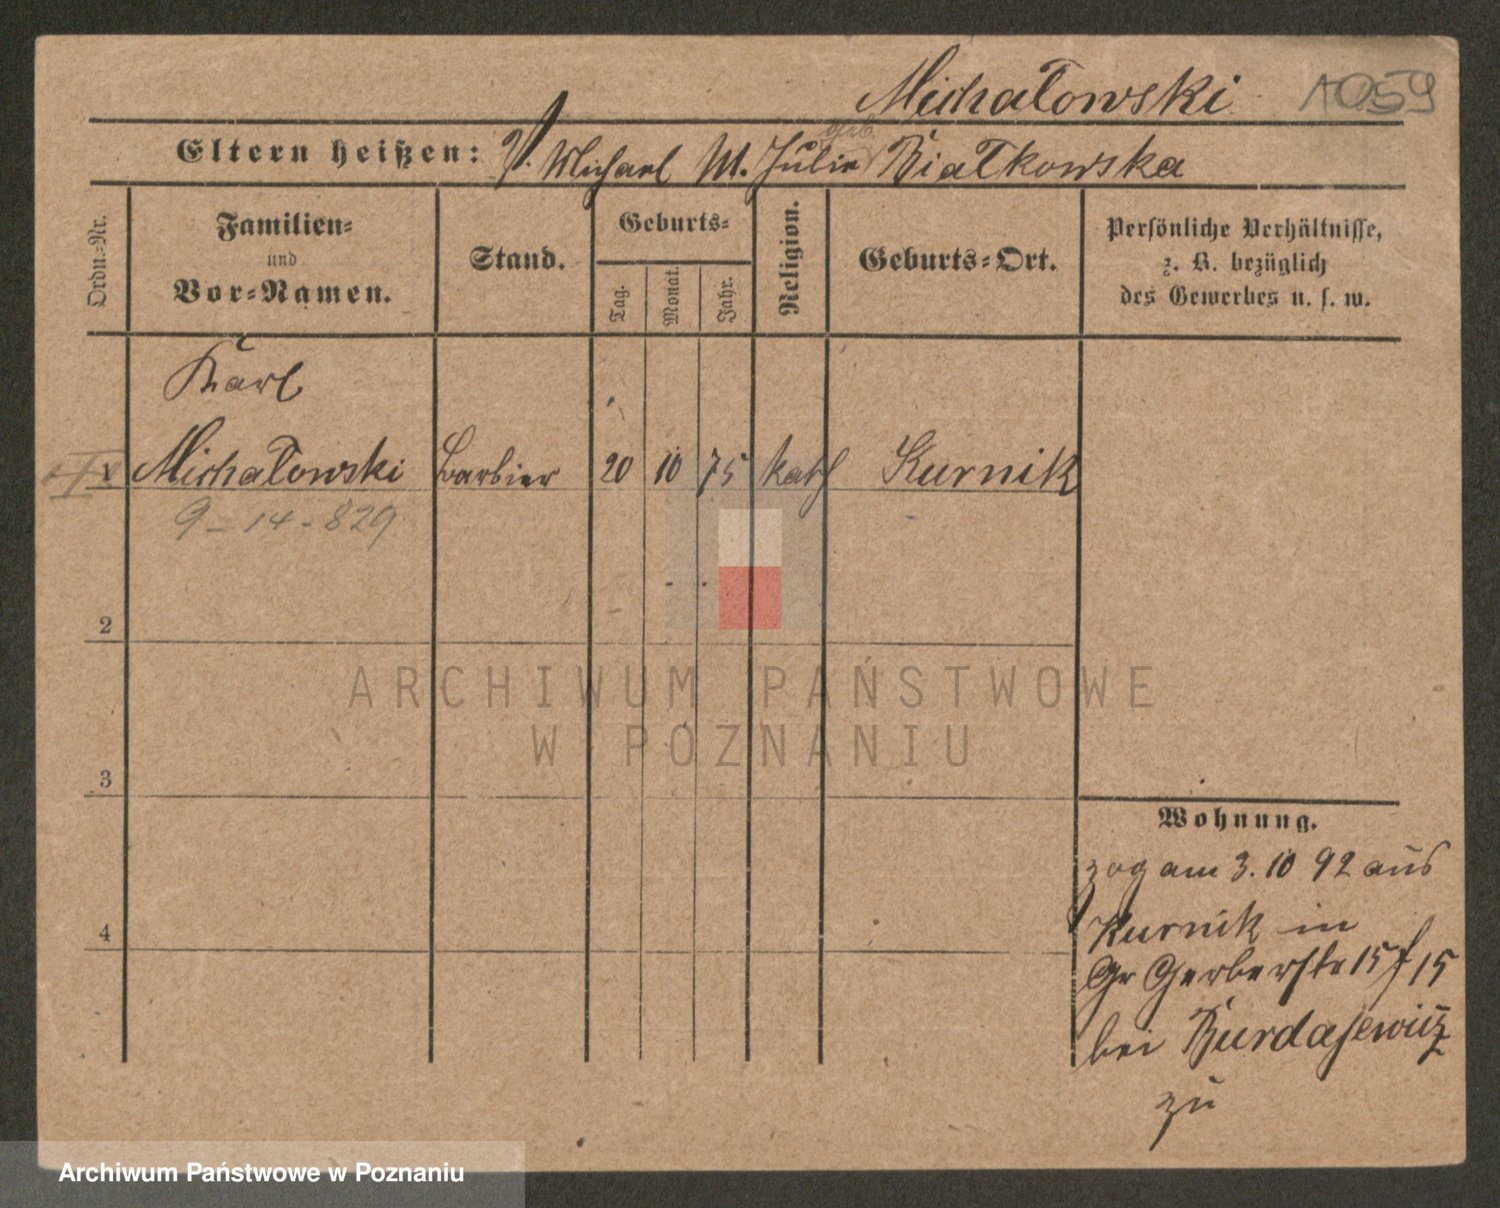 Michałowski 1059
Eltern heißen: V. Michael M. Julie geb. Białkowska
Ordn.-Nr.
Familien-
und
Vor-Namen.
Stand.
Geburts-
Tag.
Monat.
Jahr.
Religion.
Geburts-Ort.
Persönliche Verhältnisse,
z. B. bezüglich
des Gewerbes u. s. w.
Karl
1 Michałowski Barbier 20 10 75 kath Kurnik
9-14-829
2
3
4
ARCHIWUM PAŃSTWOWE
W POZNANIU
Wohnung.
zog am 3. 10 92 aus
Kurnik in
Gr Gerberstr 15 f 15
bei Burdajewicz
zu
Archiwum Państwowe w Poznaniu